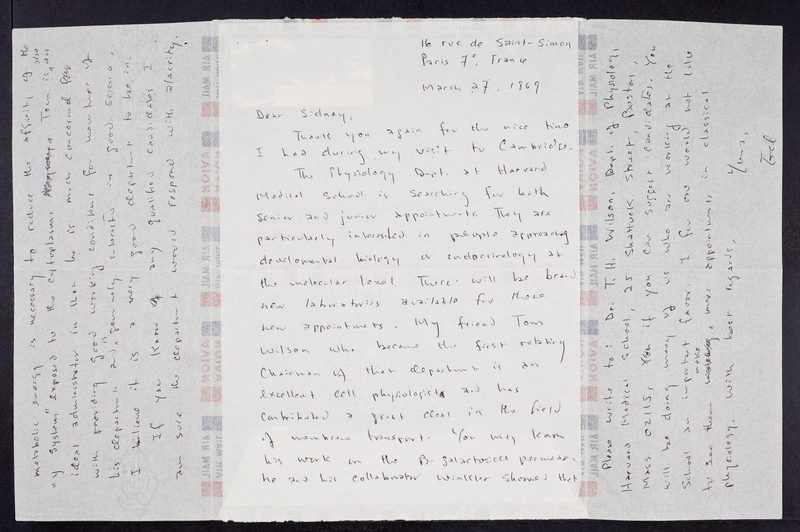 16 rue de Saint-Simon
Paris 7e, France
March 27, 1969
Dear Sidney,
Thank you again for the nice time
I had during my visit to Cambridge.
The Physiology Dept. at Harvard
Medical School is searching for both
senior and junior appointments. They are
particularly interested in people approaching
developmental biology or endocrinology at
the molecular level. There will be brand
new laboratories available for these
new appointments. My friend Tom
Wilson who became the first rotating
Chairman of that department is an
excellent cell physiologist and has
contributed a great deal in the field
of membrane transport. You may know
his work on the B-galactoside permease.
he and his collaborator Winkler showed that
metabolic energy is necessary to reduce the affinity of the
"y system" exposed to the cytoplasm. Tom is also an
ideal administrator in that he is much concerned
with providing good working conditions for members of
his department and is genuinely interested in good science.
I believe it is a very good department to be in.
If you know of any qualified candidates I
am sure the department would respond with alacrity.
Please write to: Dr. T.H. Wilson, Dept. of Physiology,
Harvard Medical School, 25 Shattuck Street, Boston,
Mass 02115, if you can suggest candidates. You
will be doing many of us who are working at the
School an important favor. I for one would not like
to see them make more appointments in classical
physiology. With best regards,
Yours,
AIR MAIL
PAR AVION